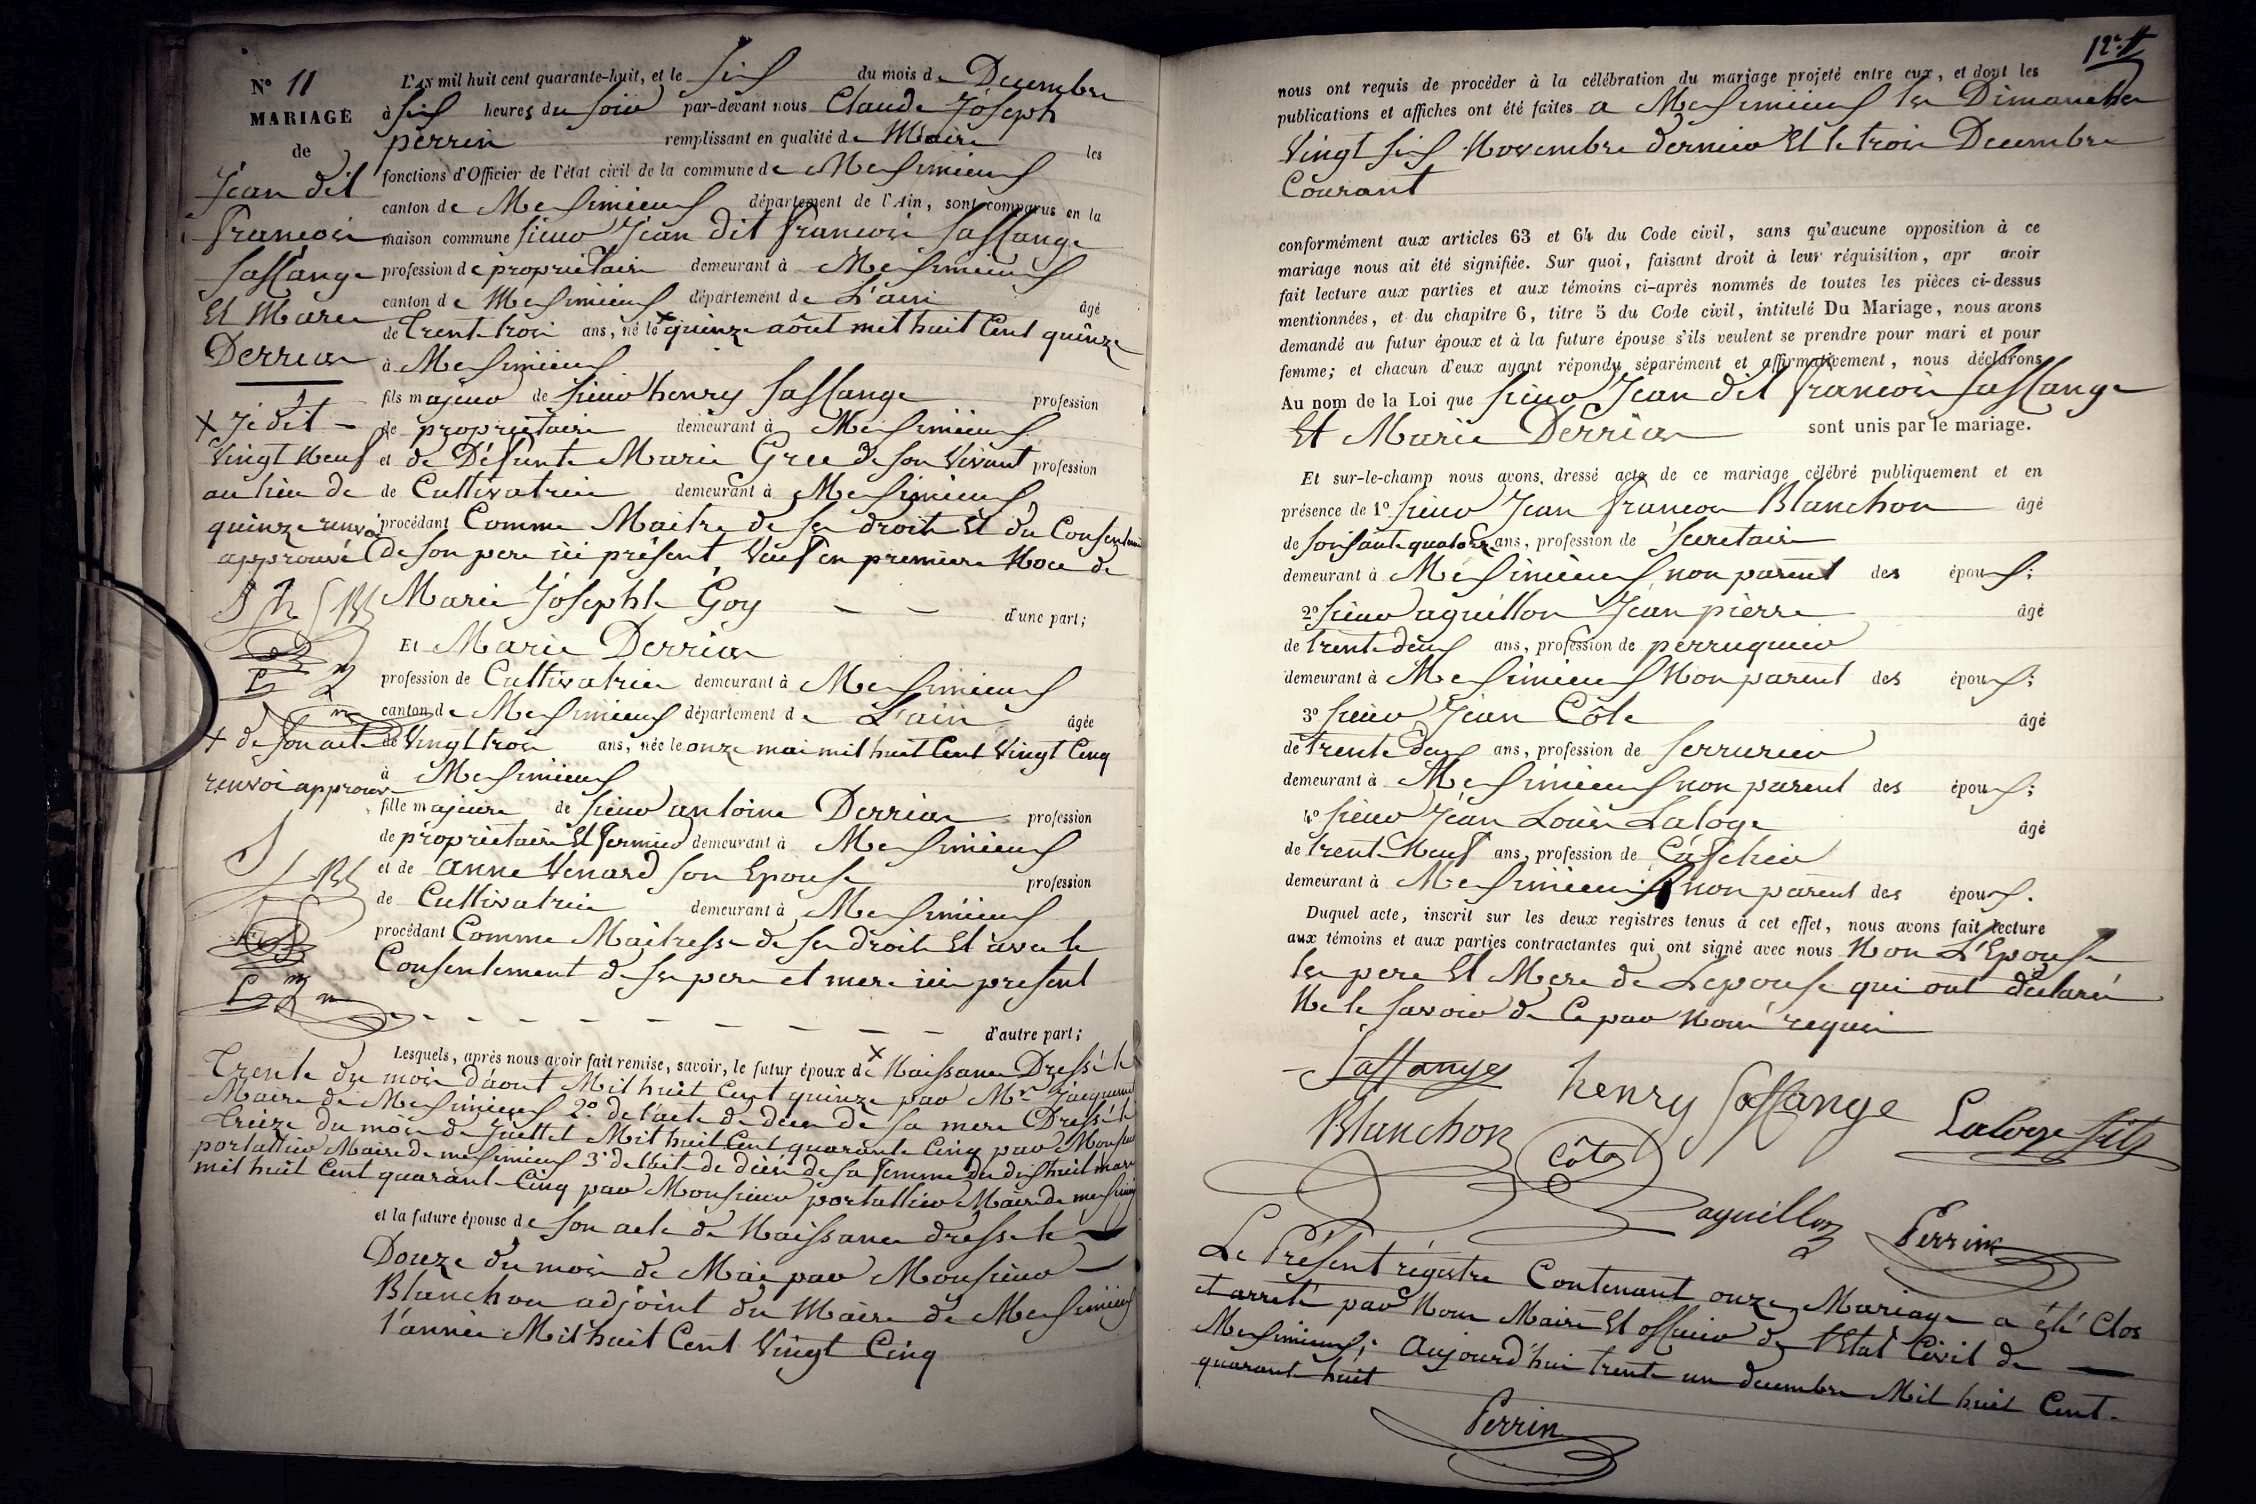 Nº 11
MARIAGE
de
Jéan dit
francois
Sasslange
Et Marie
Derrias
X Je dit —
Vingt Neuf
au lieu de
quinze renvoi
approuvé
X de son acte
renvoi approuvé
L'AN mil huit cent quarante-huit, et le Six du mois de Decembre
à Six heures du Soir par-devant nous Claude Jóseph
perrin remplissant en qualité de Maire les
fonctions d'Officier de l'état civil de la commune de Messimieux
canton de Messimieux département de l'Ain, sont comparus en la
maison commune Sieur Jéan dit francois Sasslange
profession de propriétaire demeurant à Messimieux
canton de Messimieux département de L'ain âgé
de trente trois ans, né le X quinze août mil huit Cent quinze
à Messimieux
fils majeur de Sieur henry Sasslange profession
de propriétaire demeurant à Messimieux
et de Défunte Marie Gree de son Vivant profession
de Cultivatrice demeurant à Messimieux
procédant Comme Maitre de ses droits Et du Consentement
de son pere ici présent, Veuf en premiere Noce de
Marie Jósephte Goy — — d'une part;
Et Marie Derrias
profession de Cultivatrice demeurant à Messimieux
canton de Messimieux département de L'ain âgée
de Vingt trois ans, née le onze mai mil huit Cent Vingt Cinq
à Messimieux
fille majeure de Sieur antoine Derrias profession
de propriétaire Et fermier demeurant à Messimieux
et de anne Venard son Epouse profession
de Cultivatrice demeurant à Messimieux
procédant Comme Maitresse de ses droits Et avec le
Consentement de ses pere et mere ici present
— — — — — — — — d'autre part;
Lesquels, après nous avoir fait remise, savoir, le futur époux de X Naissance Dressé le
trente du mois d'août Mil huit Cent quinze par Mr Jacquemet
Maire de Messimieux 2º de l'acte de décès de sa mere Dressé le
treize du mois de Juillet Mil huit Cent quarante Cinq par Monsieur
portallier Maire de messimieux 3º de l'acte de décès de sa femme du dix huit mars
mil huit Cent quarante Cinq par Monsieur portallier Maire de messimieux
et la future épouse de son acte de Naissance dressé le —
Douze du mois de Mai par Monsieur —
Blanchon adjoint du Maire de Messimieux
l'année Mil huit Cent Vingt Cinq
nous ont requis de procéder à la célébration du mariage projeté entre eux, et dont les
publications et affiches ont été faites a Messimieux les Dimanches
Vingt Six Novembre dernier Et le trois Decembre
Courant
conformément aux articles 63 et 64 du Code civil, sans qu'aucune opposition à ce
mariage nous ait été signifiée. Sur quoi, faisant droit à leur réquisition, apr avoir
fait lecture aux parties et aux témoins ci-après nommés de toutes les pièces ci-dessus
mentionnées, et du chapitre 6, titre 5 du Code civil, intitulé Du Mariage, nous avons
demandé au futur époux et à la future épouse s'ils veulent se prendre pour mari et pour
femme; et chacun d'eux ayant répondu séparément et affirmativement, nous déclarons
Au nom de la Loi que Sieur Jean dit francois Sasslange
Et Marie Derrias sont unis par le mariage.
Et sur-le-champ nous avons, dressé acte de ce mariage célébré publiquement et en
présence de 1º Sieur Jean francois Blanchon âgé
de Soixante quatorze ans, profession de Secretaire
demeurant à Messimieux non parent des époux;
2º Sieur aguillon Jéan pierre âgé
de trente deux ans, profession de perruquier
demeurant à Messimieux Non parent des époux;
3º Sieur Jéan Côte âgé
de trente deux ans, profession de Serrurier
demeurant à Messimieux non parent des époux;
4º Sieur Jéan Louis Laloge âgé
de trente Neuf ans, profession de Cafetier
demeurant à Messimieux non parent des époux.
Duquel acte, inscrit sur les deux registres tenus à cet effet, nous avons fait lecture
aux témoins et aux parties contractantes qui ont signé avec nous Non L'Epouse
les pere Et Mere de L'epouse qui ont déclaré
Ne le savoir de Ce par Nous requis
Sasslange henry Sasslange
Blanchon Côte Laloge fils
aguillon Perrin
Le Présent régistre Contenant onze Mariages a été Clos
et arreté par Nous Maire Et officier de l'Etat Civil de —
Messimieux; Aujourd'hui trente un decembre Mil huit Cent
quarante huit
Perrin